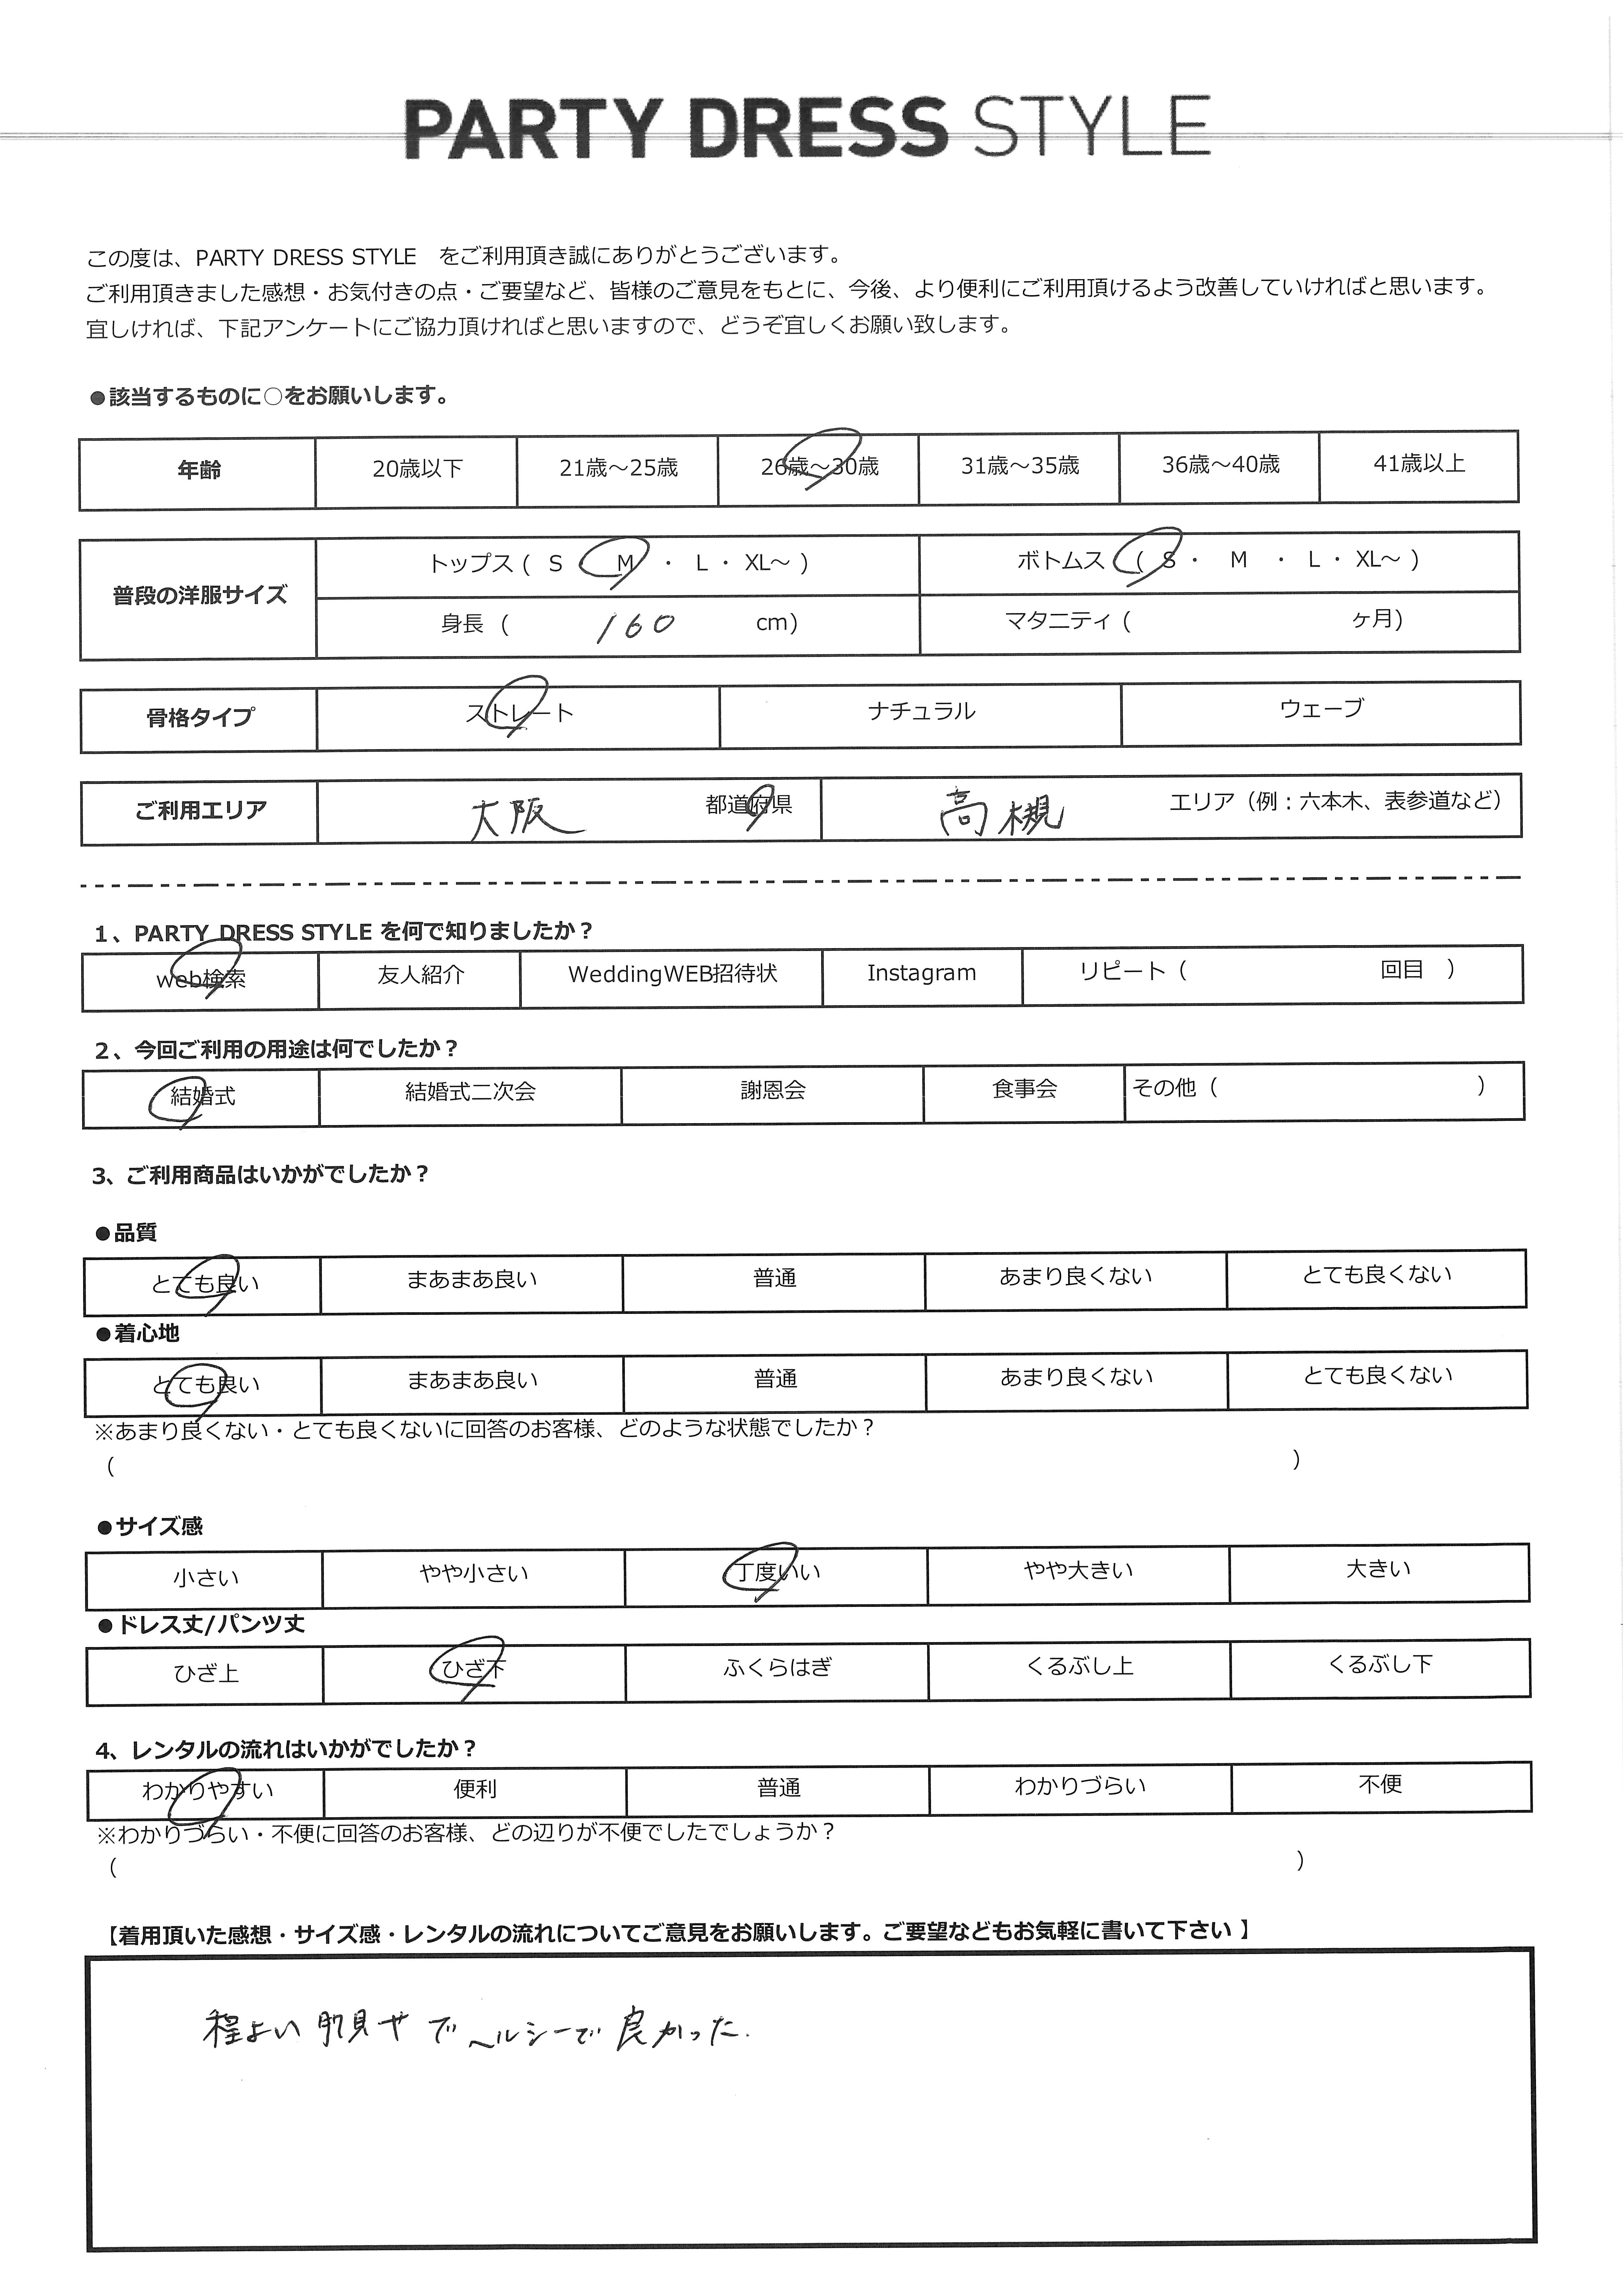 PARTY DRESS STYLE
この度は、PARTY DRESS STYLE をご利用頂き誠にありがとうございます。
ご利用頂きました感想・お気付きの点・ご要望など、皆様のご意見をもとに、今後、より便利にご利用頂けるよう改善していければと思います。
宜しければ、下記アンケートにご協力頂ければと思いますので、どうぞ宜しくお願い致します。
●該当するものに○をお願いします。
年齢 20歳以下 21歳～25歳 26歳～30歳 31歳～35歳 36歳～40歳 41歳以上
普段の洋服サイズ
トップス ( S M ・ L ・ XL～ ) ボトムス ( S ・ M ・ L ・ XL～ )
身長 ( 160 cm) マタニティ ( ヶ月)
骨格タイプ ストレート ナチュラル ウェーブ
ご利用エリア 大阪 都道府県 高槻 エリア（例：六本木、表参道など）
1、PARTY DRESS STYLE を何で知りましたか？
web検索 友人紹介 WeddingWEB招待状 Instagram リピート（ 回目 ）
2、今回ご利用の用途は何でしたか？
結婚式 結婚式二次会 謝恩会 食事会 その他（ ）
3、ご利用商品はいかがでしたか？
●品質
とても良い まあまあ良い 普通 あまり良くない とても良くない
●着心地
とても良い まあまあ良い 普通 あまり良くない とても良くない
※あまり良くない・とても良くないに回答のお客様、どのような状態でしたか？
（ ）
●サイズ感
小さい やや小さい 丁度いい やや大きい 大きい
●ドレス丈/パンツ丈
ひざ上 ひざ下 ふくらはぎ くるぶし上 くるぶし下
4、レンタルの流れはいかがでしたか？
わかりやすい 便利 普通 わかりづらい 不便
※わかりづらい・不便に回答のお客様、どの辺りが不便でしたでしょうか？
（ ）
【着用頂いた感想・サイズ感・レンタルの流れについてご意見をお願いします。ご要望などもお気軽に書いて下さい 】
程よい肌見せでヘルシーで良かった.